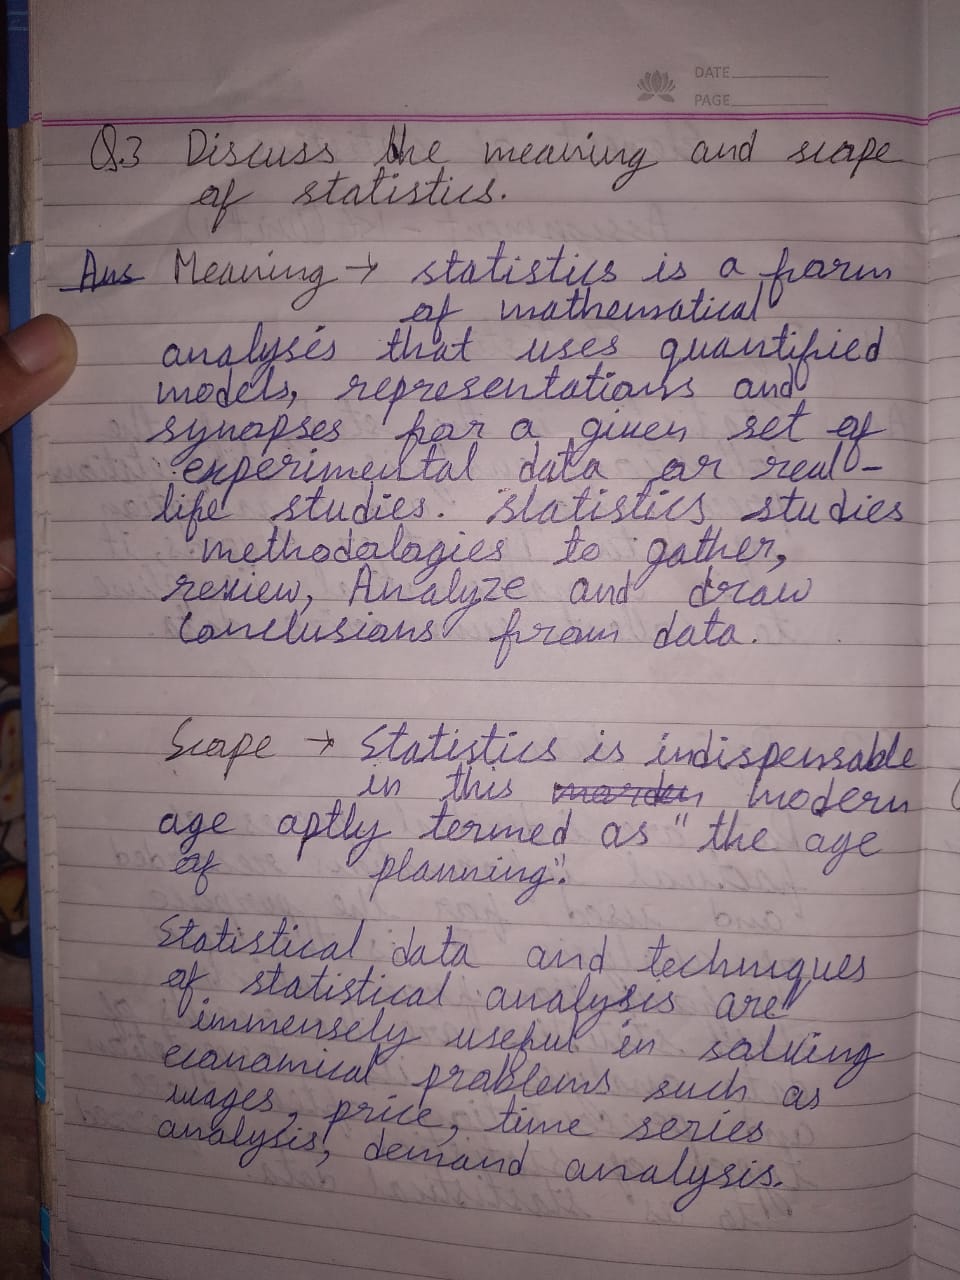 DATE
PAGE
Q.3 Discuss the meaning and scope
of statistics.
Ans Meaning → statistics is a form
of mathematical
analysis that uses quantified
models, representations and
synapses for a given set of
experimental data or real-
life studies. Statistics studies
methodologies to gather,
review, Analyze and draw
conclusions from data.
Scope → Statistics is indispensable
in this modern
age aptly termed as "the age
of planning".
Statistical data and techniques
of statistical analysis are
immensely useful in solving
economical problems such as
wages, price, time series
analysis, demand analysis.